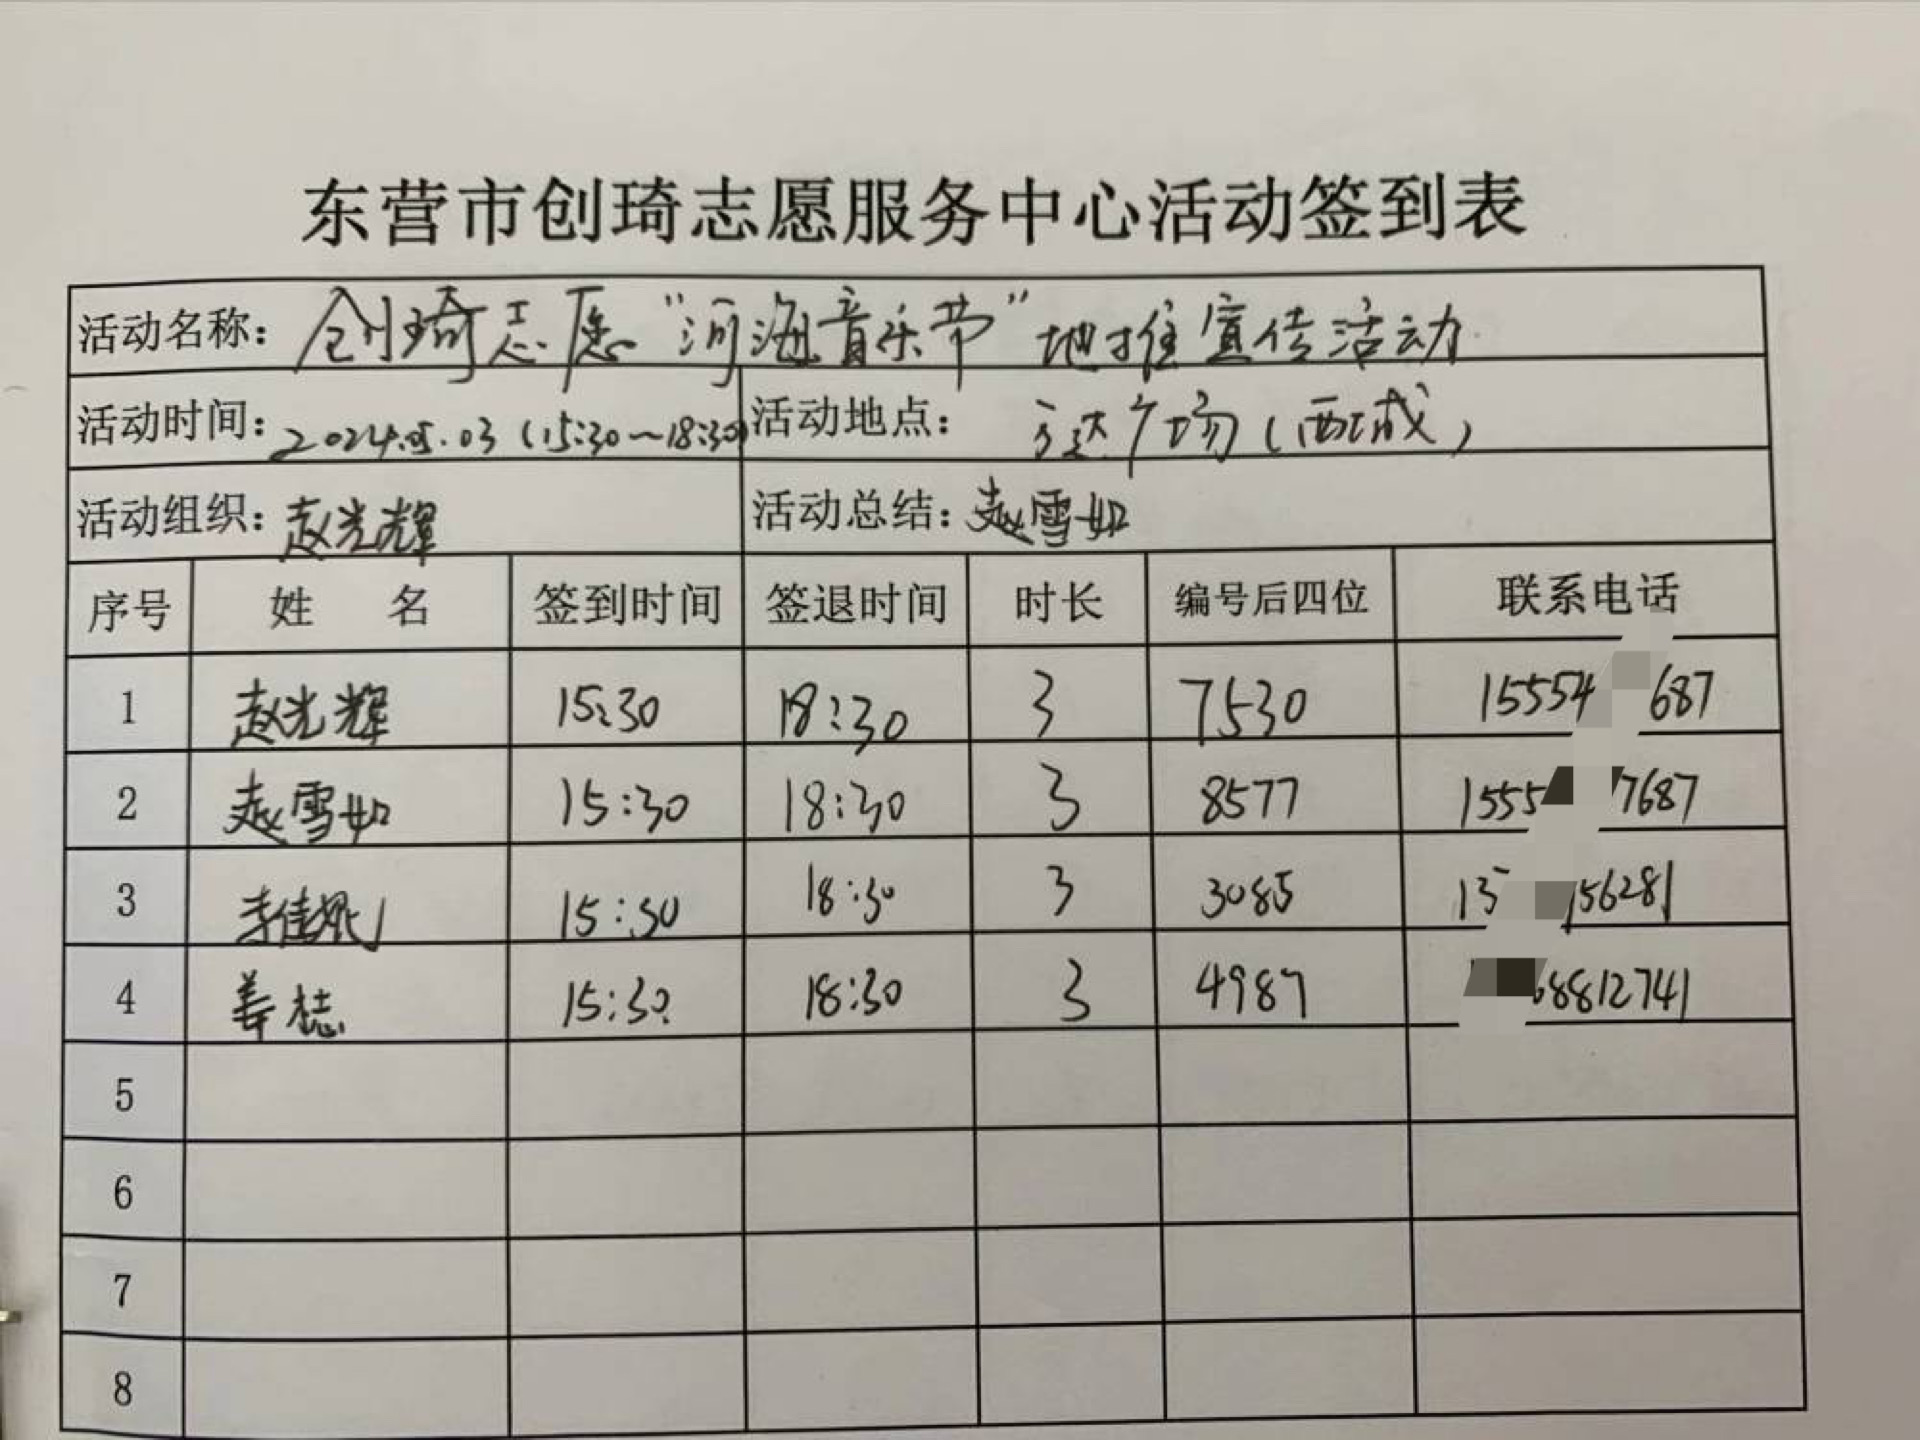 东营市创琦志愿服务中心活动签到表
活动名称：创琦志愿“河海音乐节”地推宣传活动
活动时间：2024.05.03（15:30～18:30） 活动地点：万达广场（西城）
活动组织：赵光辉 活动总结：赵雪如
序号 姓 名 签到时间 签退时间 时长 编号后四位 联系电话
1 赵光辉 15:30 18:30 3 7530 15554 687
2 赵雪如 15:30 18:30 3 8577 1555 7687
3 李佳 15:30 18:30 3 3085 13 56281
4 姜梽 15:30 18:30 3 4987 68812741
5
6
7
8